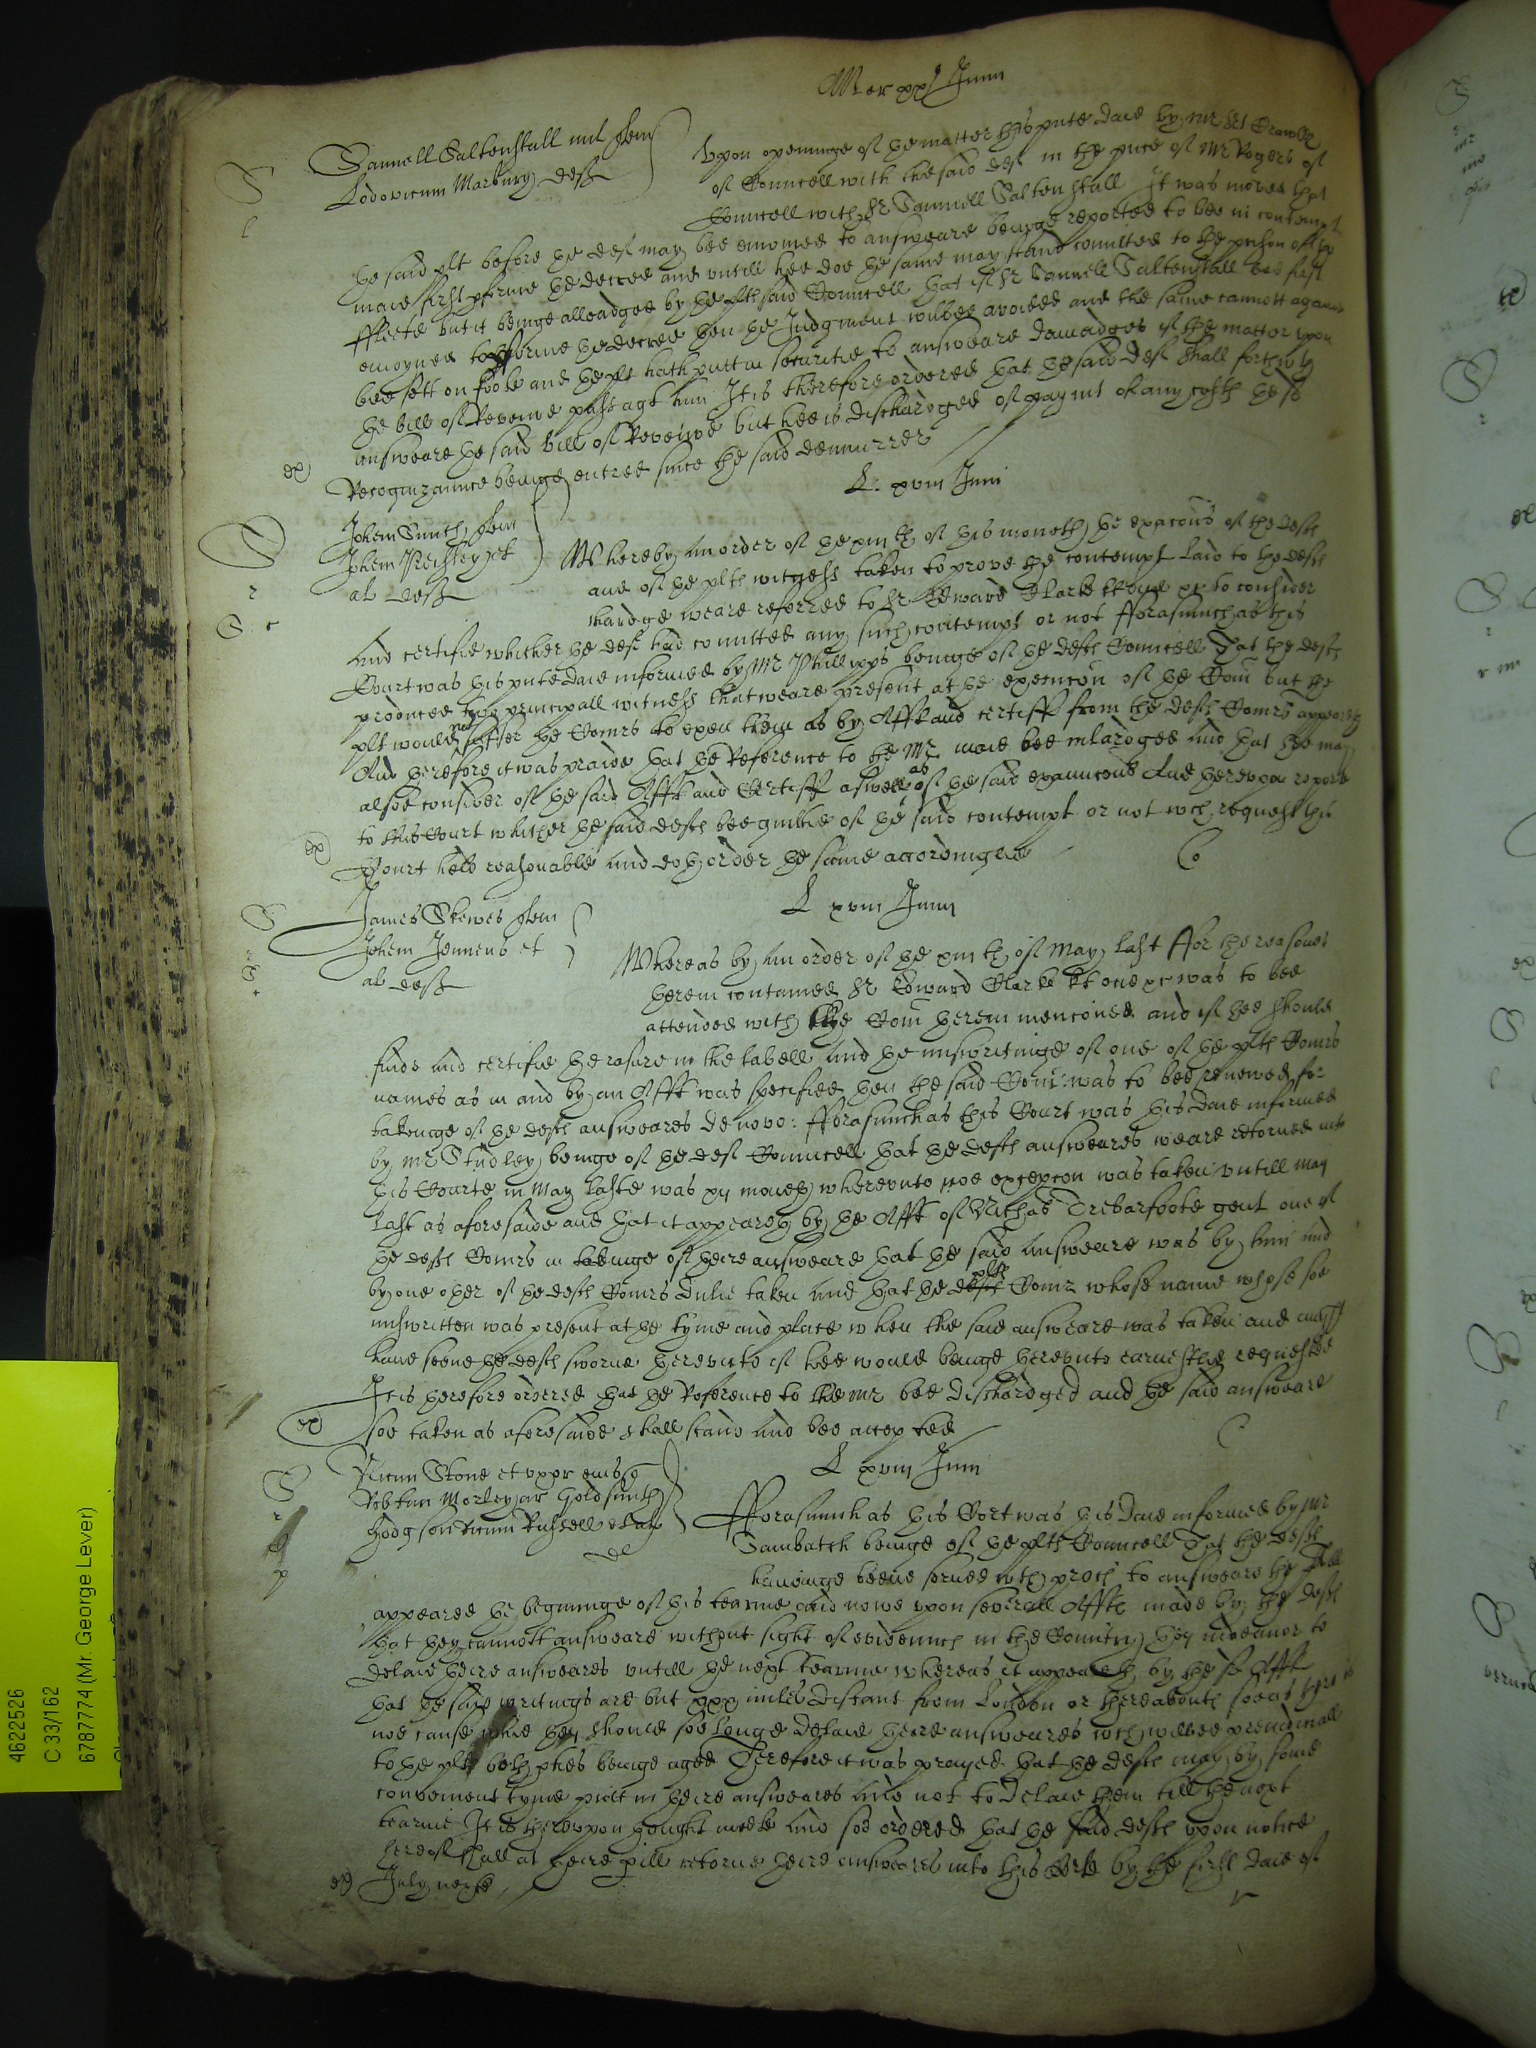 Mer xxj Junii
Samuell Saltenstall mil quer
Lodovicum Marbury deft
Upon openinge of the matter this pnte daie by Mr
of Councell with the said deft in the pnce of Mr Rogers of
Councell with Sr Samuell Saltenstall It was moved that
the said plt before the deft may bee enioyned to answeare beinge reported to bee in contempt
maie first pforme the decree and untill hee doe the same may stand comitted to the prison of the
ffleete but it beinge alleadged by the plts said Councell that if Sr Samuell Saltenstall bee first
enioyned to pforme the decree then the Judgment wilbee avoided and the same cannott againe
bee sett on foote and the plt hath putt in securitie to answeare damadges if the matter upon
the bill of Reveiwe passe agt him It is therefore ordered that the said deft shall forthwth
answeare the said bill of Reveiwe but hee is dischardged of paymt of any costs the sd
Recognizaunce beinge entred since the said demurrer
ex
L. xviii Junii
Johem Smith quer
Johem et
al deft
Whereby an order of the xiiith of this moneth the exacons of the defts
and of the plts witness taken to prove the contempt laid to the defts
chardge weare referred to Sr Edward Clarke to consider
and certifie whither the deft had comitted any such contempt or not Fforasmuch as this
Court was this pnte daie informed by Mr Phillipps beinge of the defts Councell That the defts
produced two principall witness that weare present at the execucon of the Com but the
plt would not suffer the Comrs to exen them as by Afft and certiff from the defts Comrs appeareth
And therefore it was praied that the Reference to the Mr maie bee inlardged and that hee may
alsoe consider of the said Afft and Certiff aswell as of the said examicons And thereupon reporte
to this Court whither the said defts bee guiltie of the said contempt or not wch request this
Court held reasonable and doth order the same accordinglie
ex
L xviii Junii
James Skewes quer
Johem Jennens et
al deft
Whereas by an order of the xiiith of May last Ffor the reasones
therein contained Sr Edward Clarke kt one was to bee
attended with the Com therein mencioned and if hee should
finde and certifie the rasure in the labell and the miswritinge of one of the plts Comrs
names as in and by an Afft was specified then the said Com was to bee renewed for
takeinge of the defts answeares de novo: Fforasmuch as this Court was this daie informed
by Mr Studley beinge of the deft Councell that the defts answeares weare retorned into
this Courte in May laste was xii moneth whereunto noe excepcon was taken untill May
last as aforesaide and that it appeareth by the Afft of Nichas Trebarfoote gent one of
the defts Comrs in takeinge of theire answeare that the said answeare was by him and
by one other of the defts Comrs dulie taken and that the plts Comr whose name whose soe
miswritten was present at the tyme and place when the said answeare was taken and might
have seene the defts sworne thereunto if hee would beinge thereunto earnestlie requested
It is therefore ordered that the Reference to the Mr bee dischardged and the said answeare
soe taken as aforesaide shall stand and bee accepted
ex
L xviii Junii
Ricum Stone et uxor eius q
Robtum Morley ar Goldsmith
Hodgson Ricum Russell et al
de
Fforasmuch as this Cort was this daie informed by Mr
Sambatch beinge of the plts Councell That the defts
haveinge beene served wth proces to answeare the bill
appeared the begininge of this tearme and nowe upon severall Affts made by the defts
that they cannott answeare without sight of evidennch in the Countrey they indeavor to
delaie theire answeares untill the next tearme whereas it appeareth by the sd Afft
that the said writings are but xxx miles distant from London or thereabouts soe as there is
noe cause whie they should soe longe delaie theire answeares wch wilbee preiudiciall
to the plts both pties beinge aged Therefore it was prayed that the defts may by some
convenient tyme putt in theire answeares and not to delaie them till the next
tearme It is thereupon thought meete and soe ordered that the said defts upon notice
hereof shall at theire pill retorne theire answeares into this Corte by the first daie of
July nexte
ex
4622526
C 33/162
6787774 (Mr. George Lever)